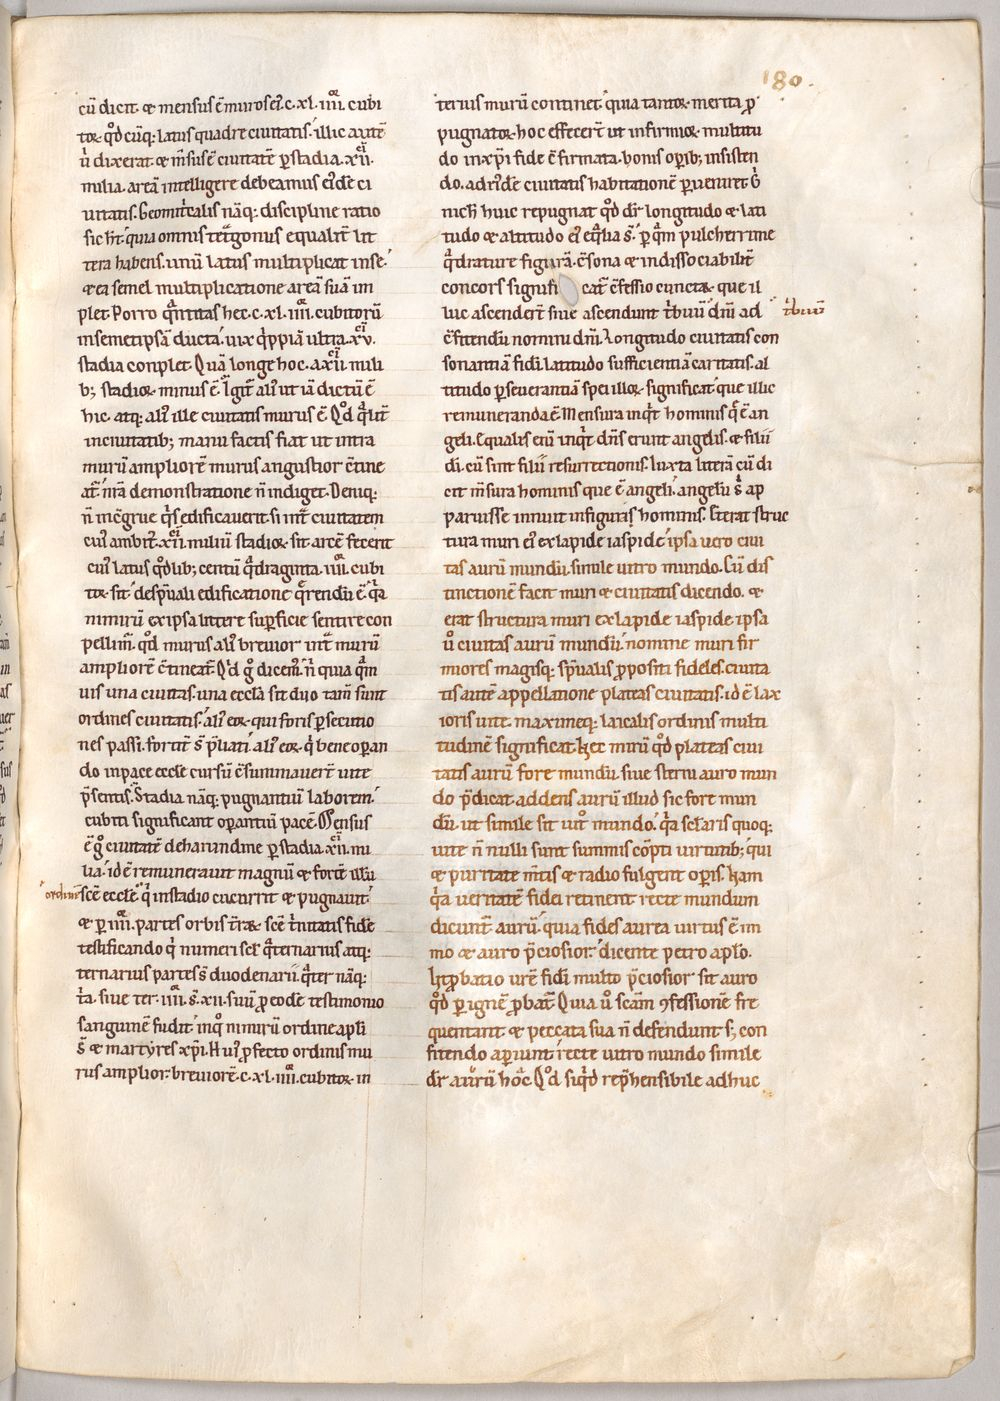 180.
cū dicit. & mensus ē murosei⁹.c.xl.iiii. cubi
toꝝ. qd̄ cūq; latus quadre ciuitatis. illic autē
ū dixerat. & m̄susē ciuitatē ꝑ stadia.xii.
milia. areā intelligere debeamus ei⁹dē ci
uitatis. Geomet̄calis nāq; discipline ratio
sic h̄t. quia omnis tet̄gonus equalit̄ lat
tera habens. unū latus multiplicat inse.
& ea semel multiplicatione areā suā im
plet. Porro qͣntitas hec.c.xl.iiii. cubitorū
insemetipsā ducta. uix qͥppiā ultra.xv.
stadia conplet. Quā longe hoc. a.xii. mili
b; stadioꝝ minus ē. Igit̄ ali⁹ ut iā dictū ē
hic. atq; ali⁹ ille ciuitatis murus ē. Qd̄ qͣlit̄
inciuitatib; manu factis fiat ut intra
murū ampliorē murus angustior c̄tine
at. nr̄a demonstratione n̄ indiget. Deniq;
n̄ incḡrue qͥs edificauerit. si int̄ ciuitatem
cui⁹ ambit⁹.xii. miliū stadioꝝ sit. arcē fecerit
cui⁹ latus qd̄lib; centū qͣdraginta.iiii. cubi
toꝝ sit. despūali edificatione qͣrendū ē. qͣa
nimirū ex ipsa littere suꝑficie sentire con
pellim̄. qd̄ murus ali⁹ breuior int̄ murū
ampliorē c̄tineat. Qd̄ g̊ dicem⁹. n̄ quia qͣm
uis una ciuitas. una eccl̄a sit. duo tam̄ sunt
ordines ciuitatis. ali⁹ eoꝝ qui foris ꝑsecutio
nes passi. fortit̄ s̄ p̄liati. ali⁹ eoꝝ qͥ bene oꝑan
do in pace eccl̄e cursū c̄summauert̄ uite
p̄sentis. Stadia nāq; pugnantiū laborem.
cubiti significant oꝑantiū pacē. Mensus
ē g̊ ciuitatē deharundine ꝑ stadia.xii. mi
lia. id ē remunerauit magnū & fortē illū
ordinē
scē eccl̄e. qͥ in stadio cucurrit & pugnauit.
& ꝑ.iiii. partes orbis t̄raꝝ scē t̄nitatis fidē
testificando qͥ numeri scl̄ qͣternarius atq;
ternarius partes s̄ duodenarii. qͣter nāq;
t̄a. siue ter.iiii. s̄.xii. suū ꝓ eodē testimonio
sanguinē fudit. in qͦ nimirū ordine apl̄i
s̄ & martyres xp̄i. Hui⁹ ꝓfecto ordinis mu
rus amplior. breuiorē.c.xl.iiii. cubitoꝝ in
terius murū continet. quia tantoꝝ merita ꝓ
pugnatoꝝ hoc effecert̄ ut infirmioꝝ multitu
do in xp̄i fide c̄firmata. bonis oꝑib; insisten
do. ad ei⁹dē ciuitatis habitationē ꝑueniret. &
nichil huic repugnat qd̄ dr̄ longitudo & lati
tudo & altitudo ei⁹ eqͣlia s̄. ꝑ qͣm pulcherrime
qͣdrature figurā. c̄sona & indissociabilit̄
concors signifi cat̄ c̄fessio cunctaꝝ que il
luc ascendert̄ siue ascendunt t̄buū dn̄i ad
t̄buū
c̄fitendū nomini dn̄i. Longitudo ciuitatis con
sonantiā fidei. latitudo sufficientiā caritatis. al
titudo ꝑseuerantiā spei illoꝝ significat. que illic
remuneranda ē. Mensura inqͥt hominis qͣ ē an
geli. Equalis enī inqͥt dn̄s erunt angelis. & filii
dei. cū sint filii resurrectionis. Iuxta literā cū di
cit m̄sura hominis que ē angeli. angelū s̄ ap
paruisse innuit infiguris hominis. Et erat struc
tura muri ei⁹ ex lapide iaspide. ipsa uero ciui
tas aurū mundū. simile uitro mundo. Cū dis
tinctionē facit muri & ciuitatis dicendo. &
erat structura muri ex lapide iaspide ipsa
ū ciuitas aurū mundū. nomine muri fir
miores magisq; sp̄ualis ꝓpositi fideles. ciuita
tis autē appellatione plateas ciuitatis. id ē lax
ioris uite. maximeq; laicalis ordinis multi
tudinē significat. Hec mirū qd̄ plateas ciui
tatis aurū fore mundū. siue sterni auro mun
do p̄dicat. addens aurū illud sic fore mun
dū. ut simile sit uit̊ mundo. qͣa sclāris quoq;
uite n̄ nulli sunt summis cōpti uirtutib;. qui
& puritate m̄tis & radio fulgent oꝑis. Nam
qͣa ueritatē fidei retinent recte mundum
dicunt̄ aurū. quia fides aurea uirtus ē. im
mo & auro p̄ciosior. dicente petro apl̄o.
Ut ꝓbatio ur̄e fidei multo p̄ciosior sit auro
qd̄ ꝑ ignē ꝓbat̄. Quia ū scām ꝯfessionē fre
quentant & peccata sua n̄ defendunt s; con
fitendo aꝑiunt. recte uitro mundo simile
dr̄ aurū hoc. Qd̄ siqͥd rep̄hensibile adhuc